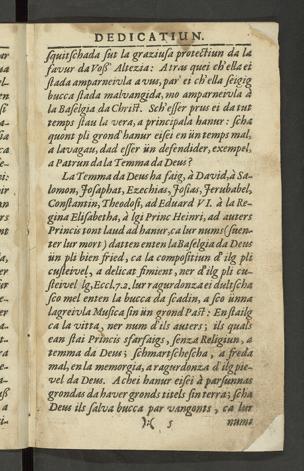 DEDICATIUN.
squitschada sut la graziusa protectiun da la
favur da Voss' Altezia: A tras quei ch'ella ei
stada amparneivla a vus, par' ei ch'ella seigig
bucca stada malvangida, mo amparnevla à
la Baselgia da Christ. Sch'esser prus ei da tut
temps stau la vera, a principala hanur: scha
quont pli grond' hanur eisei en ün temps mal,
a lavagau, dad esser ün defendider, exempel,
a Patrun da la Temma da Deus?
La Temma da Deus ha faig, à David, à Sa-
lomon, Josaphat, Ezechias, Josias, Jerubabel,
Constantin, Theodosi, ad Eduard VI. à la Re-
gina Elisabetha, à lgi Princ Heinri, ad auters
Princis tont laud ad hanur, ca lur nums (suen-
ter lur mort) datten enten la Baselgia da Deus
ün pli bien fried, ca la compositiun d'ilg pli
custeivel, a delicat fimient, ner d'ilg pli cu-
steivel lg, Eccl. 7.2. lur ragurdonza ei dultscha
sco mel enten la bucca da scadin, a sco ünna
lagreivla Musica sin ün grond Past: En stailg
ca la vitta, ner num d'ils auters; ils quals
ean stai Princis sfarfaigs, senza Religiun, a
temma da Deus; schmartschescha, a freda
mal, en la memorgia, a ragurdonza d'ilg pie-
vel da Deus. Achei hanur eisei à parsunnas
grondas da haver gronds titels sin terra; scha
Deus ils salva bucca par vangonts, ca lur
):( 5
nums